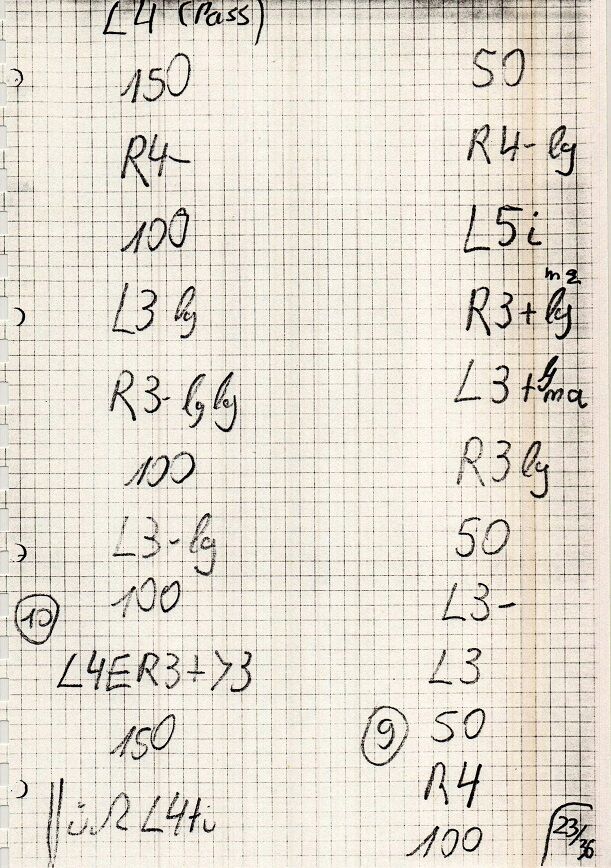 L4 (Pass)
150
R4-
100
L3 lg
R3- lg lg
100
L3- lg
100
10
L4ER3+>3
150
L4+i
50
R4- lg
L5i
R3+ lg ma
L3+ lg ma
R3 lg
50
L3-
L3
9
50
R4
100
23/36